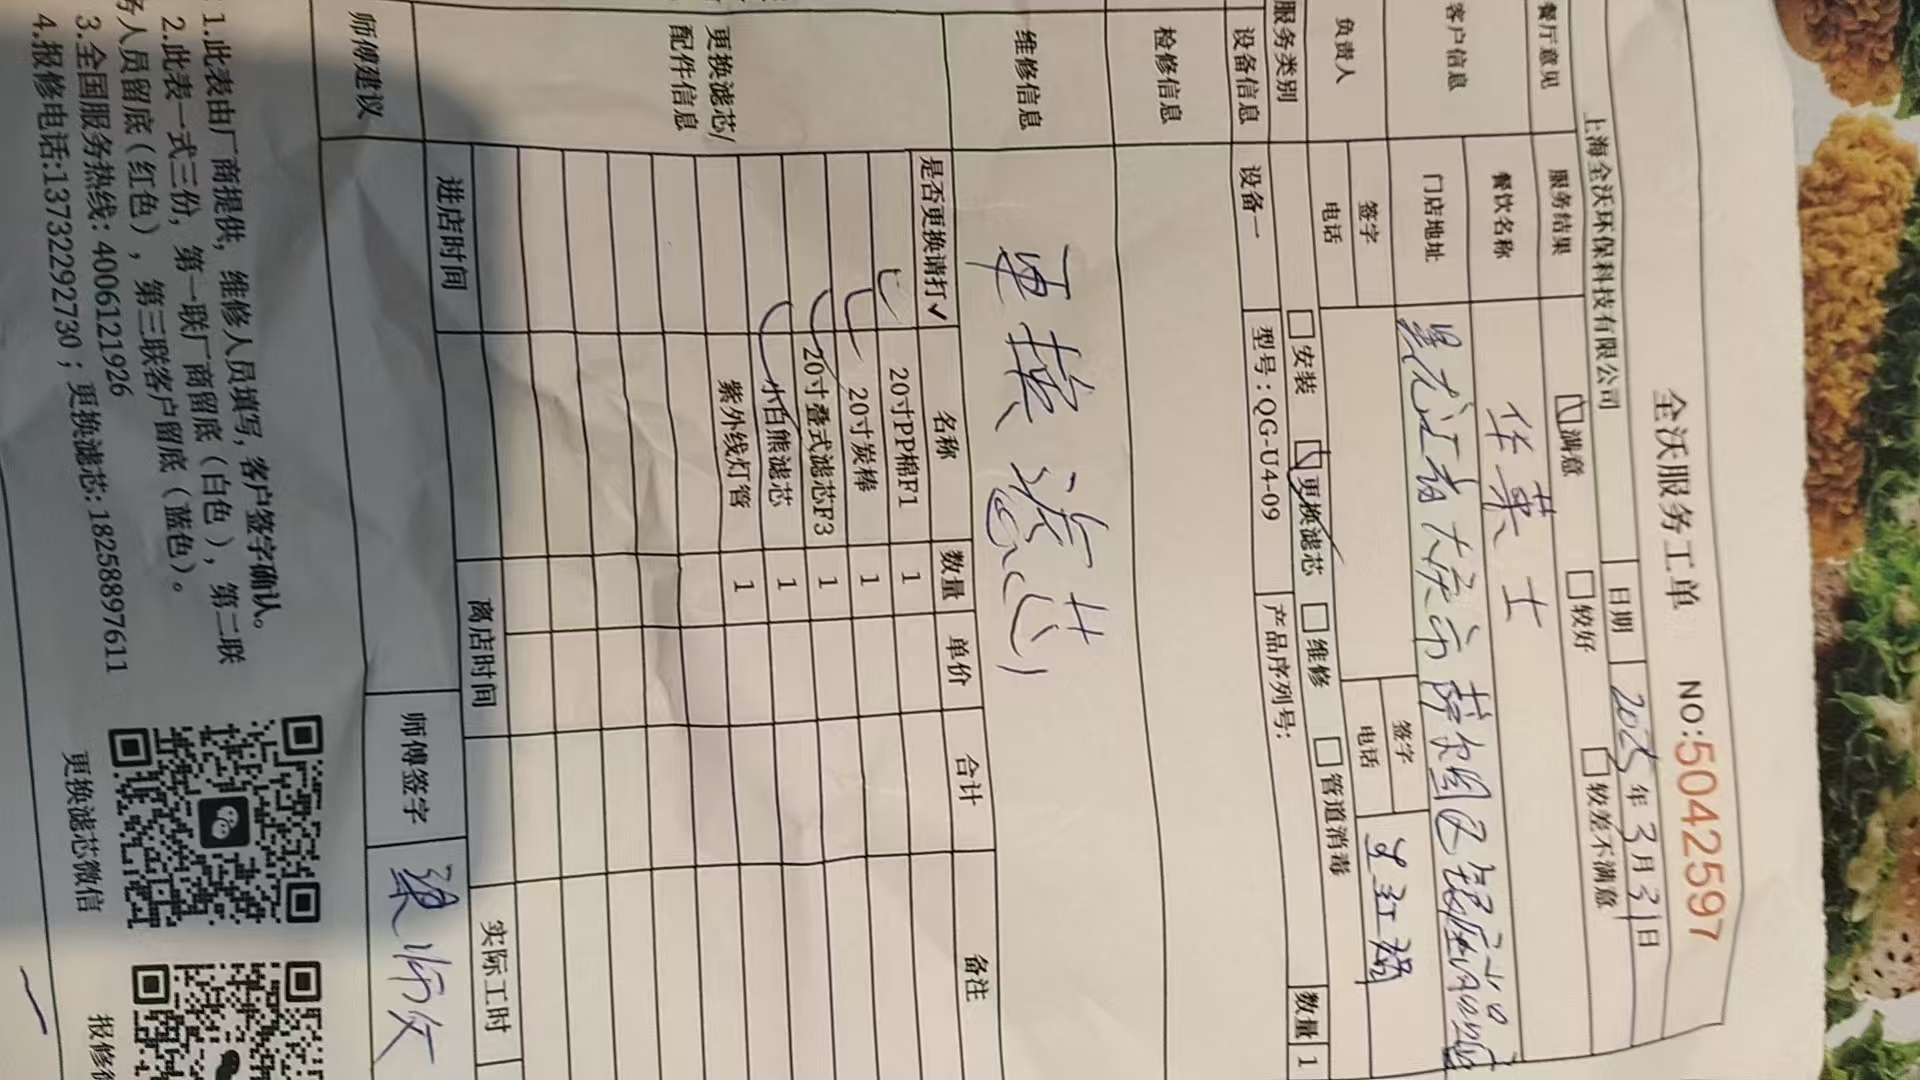 全沃服务工单 NO:5042597
上海全沃环保科技有限公司 日期 2025年3月31日
餐厅意见 服务结果 满意 较好 较差不满意
客户信息 餐饮名称 华莱士
门店地址 黑龙江省大庆市萨尔图区
负责人 签字 签字 王红
电话 电话
服务类别 安装 更换滤芯 维修 管道消毒
设备信息 设备一 型号:QG-U4-09 产品序列号: 数量 1
检修信息
维修信息 更换滤芯
更换滤芯/
配件信息
是否更换请打✓ 名称 数量 单价 合计 备注
✓ 20寸PP棉F1 1
✓ 20寸炭棒 1
✓ 20寸叠式滤芯F3 1
✓ 小白熊滤芯 1
紫外线灯管 1
进店时间 离店时间 实际工时
师傅建议 师傅签字
1.此表由厂商提供,维修人员填写,客户签字确认。
2.此表一式三份,第一联厂商留底(白色),第二联
务人员留底(红色),第三联客户留底(蓝色)。
3.全国服务热线:4006121926
4.报修电话:13732292730;更换滤芯:18258897611
更换滤芯微信
报修